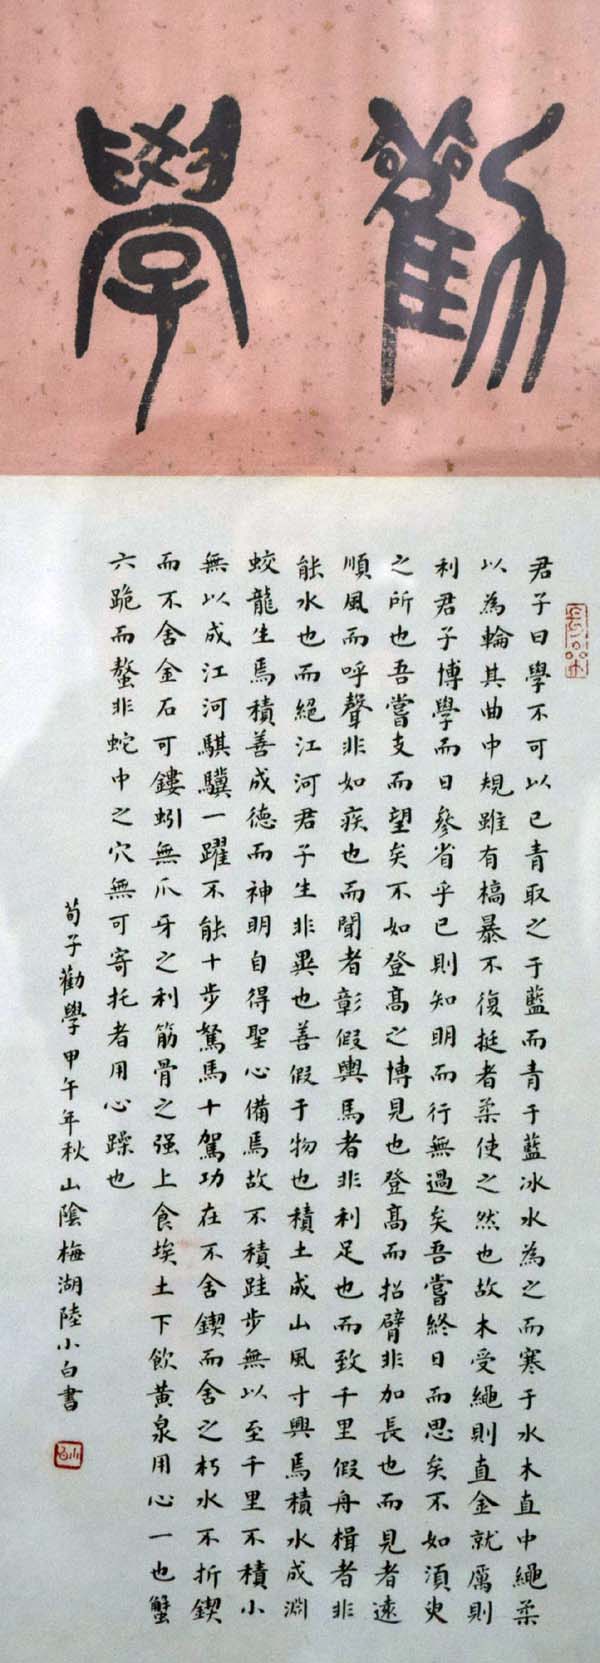 勸學
君子曰學不可以已青取之于藍而青于藍冰水為之而寒于水木直中繩柔
以為輪其曲中規雖有槁暴不復挺者柔使之然也故木受繩則直金就厲則
利君子博學而日參省乎已則知明而行無過矣吾嘗終日而思矣不如須臾
之所也吾嘗支而望矣不如登高之博見也登高而招臂非加長也而見者遠
順風而呼聲非如疾也而聞者彰假輿馬者非利足也而致千里假舟楫者非
能水也而絕江河君子生非異也善假于物也積土成山風寸興焉積水成淵
蛟龍生焉積善成德而神明自得聖心備焉故不積跬步無以至千里不積小
無以成江河騏驥一躍不能十步駑馬十駕功在不舍鍥而舍之朽水不折鍥
而不舍金石可鏤蚓無爪牙之利筋骨之强上食埃土下飲黃泉用心一也蟹
六跪而螯非蛇中之穴無可寄托者用心躁也
荀子勸學甲午年秋山陰梅湖陸小白書